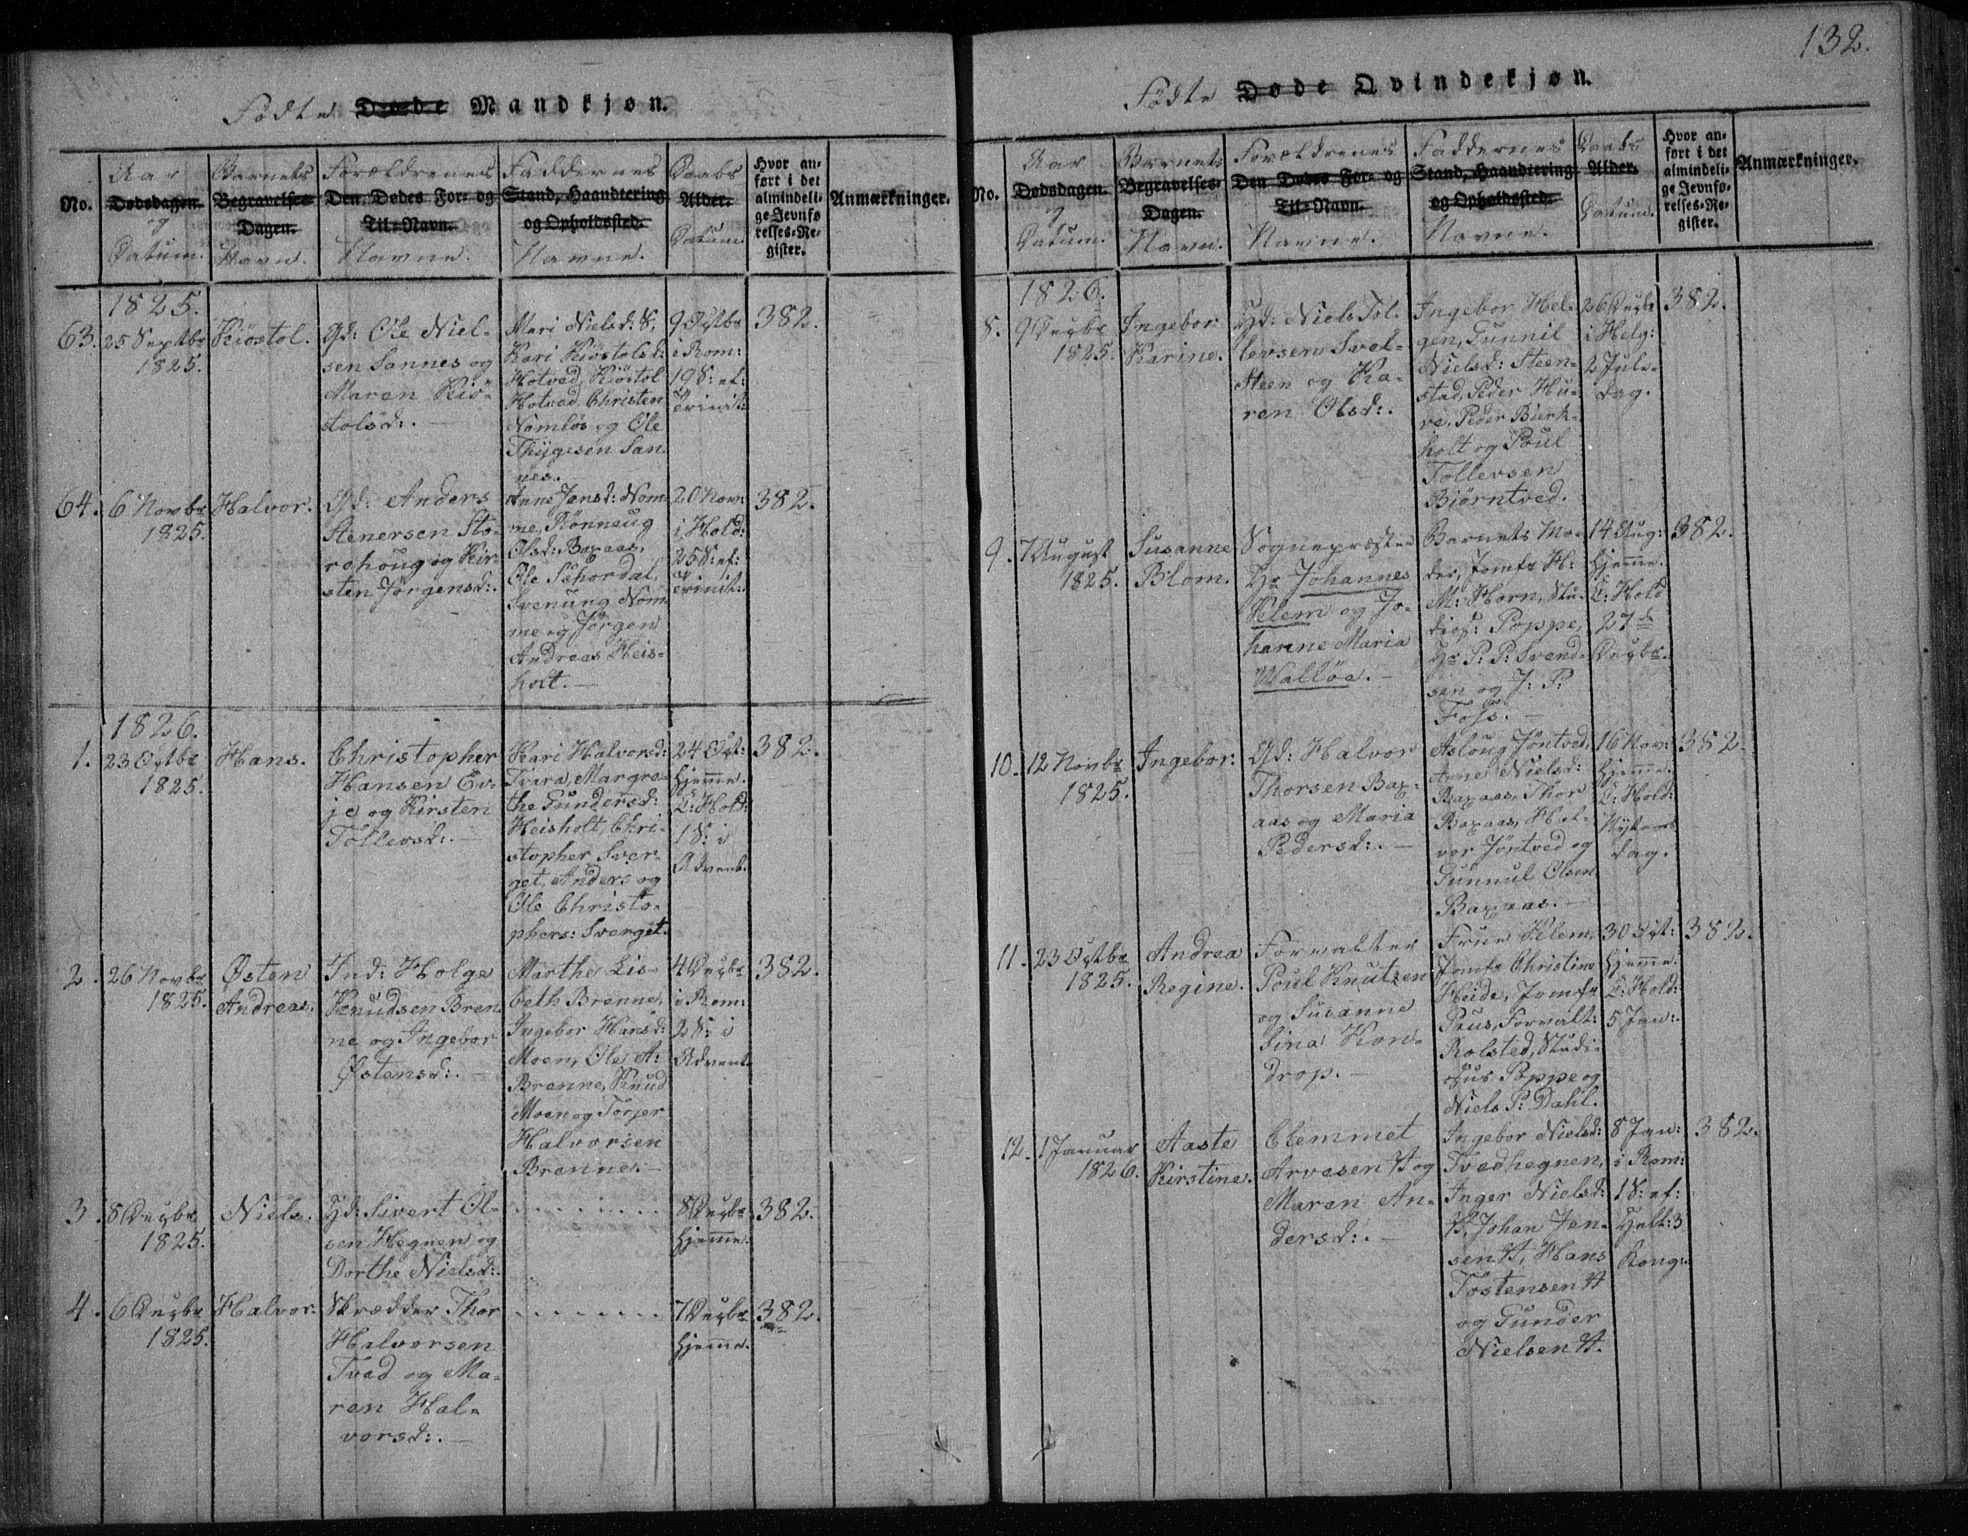 Födte Døde Mandkjøn.
No.
Aar
Dødsdagen.
og
Datum.
Barnets
Begravelses-
Dagen.
Navn.
Forældrenes
Den Dødes For- og
Til-Navn.
Navne.
Faddernes
Stand, Haandtering
og Opholdssted.
Navne.
Daabs
Alder.
Datum.
Hvor an-
ført i det
almindeli-
ge Jevnfø
relses-Re-
gister.
Anmærkninger.
1825.
63.
25 Septbr
1825.
Kiöstol.
Gd: Ole Niel-
sen Sannes og
Maren Kiö-
stolsd:.
Mari Nielsd: S,
Kari Kiöstolsd:
Hotved, Kiöstol
Hotved, Christen
Nomløs og Ole
Thygesen San-
nes.
9 Octbr
i Rom:
19 S: ef:
Trinit:
382.
64.
6 Novbr
1825.
Halvor.
Gd: Anders
Stenersen Sto-
rehoug og Kir-
sten Jörgensd:.
Anne Jensd: Nom-
me, Rönnaug
Olsd: Baxaas,
Ole Schordal,
Svenung Nom-
me og Jörgen
Andreas Heis-
holt.
20 Nov:
i Hold:
25 S: ef:
Trinit:.
382.
1826.
1.
23 Octbr
1825.
Hans.
Christopher
Hansen Ev-
je og Kirsten
Tollevsd:.
Kari Halvorsd:
Tvara, Margre-
the Gundersd:
Heisholt, Chri-
stopher Sver-
get, Anders og
Ole Christo-
phers: Sverget.
24 Oct:
hjemme.
T: Hold:
1 S: i
Advent.
382.
2.
26 Novbr
1825.
Østen
Andreas.
Ind: Holge
Knudsen Bren-
ne og Ingebor
Østensd:.
Marthe Lis-
beth Brenne,
Ingebor Hansd:
Moen, Ole A:
Brenne, Knud
Moen og Torjer
Halvorsen
Brenne.
4 Decbr
i Rom:
2 S: i
Advent.
382.
3.
8 Decbr
1825.
Niels.
Gd: Sivert Ol-
sen Hegnen og
Dorthe Nielsd:.
8 Decbr
hjemme.
382.
4.
6 Decbr
1825.
Halvor.
Skrædder Thor
Halvorsen
Tved og Ma-
ren Hal-
vorsd:.
7 Decbr
hjemme.
382.
132.
Födte Døde Qvindekjøn.
No.
Aar
Dødsdagen.
og
Datum.
Barnets
Begravelses-
Dagen.
Navn.
Forældrenes
Den Dødes For- og
Til-Navn.
Navne.
Faddernes
Stand, Haandtering
og Opholdssted.
Navne.
Daabs
Alder.
Datum.
Hvor an-
ført i det
almindeli-
ge Jevnfø-
relses-Re-
gister.
Anmærkninger.
1826.
8.
9 Decbr
1825.
Ingebor
Karine.
Gd: Niels Tol-
levsen Svel-
steen og Ka-
ren Olsd:.
Ingebor Hel-
gen, Gunnil
Nielsd: Steen-
stad, Peder Hu-
ve, Peder Bierk-
holt og Poul
Tollevsen
Biörntved.
26 Decbr
i Helg:
2 Jule-
dag.
382.
9.
7 August
1825.
Susanne
Blom.
Sognepræsten
Hr Johannes
Klem og Jo-
hanne Maria
Walløe.
Barnets Mo-
der, Jomfr H:
M: Horn, Stu-
dios: Poppe,
Hr P: P: Svend-
sen og J: P:
Foss.
14 Aug:
hjemme.
T: Hold
27de
Decbr.
382.
10.
12 Novbr
1825.
Ingebor.
Gd: Halvor
Thorsen Bax-
aas og Maria
Pedersd:.
Aslöug Jöntved,
Anne Nielsd:
Baxaas, Thor
Baxaas, Hal-
vor Jöntved og
Gunnul Olsen
Baxaas.
16 Nov:
hjemme.
T: Hold:
Nytaars
dag.
382.
11.
23 Octbr
1825.
Andrea
Regine.
Forvalter
Poul Knutzen
og Susanne
Sina Kon-
drop.
Frue Klem,
Jomfr Christine
Heide, Jomfr
Prus, Forvalt:
Rolsted, Studi-
osus Poppe og
Niels P: Dahl.
30 Oct:
hjemme.
T: Hold:
5 Jan:.
382.
12.
1 Januar
1826.
Aaste
Kirstine.
Clemmet
Arvesen H og
Maren An-
dersd:.
Ingebor Nielsd:
Tvedhegnen,
Inger Nielsd:
H, Johan Jen-
sen H, Hans
Tostensen H
og Gunder
Nielsen H.
8 Jan:
i Rom:
1 S: ef:
Hell: 3
Kong:
382.